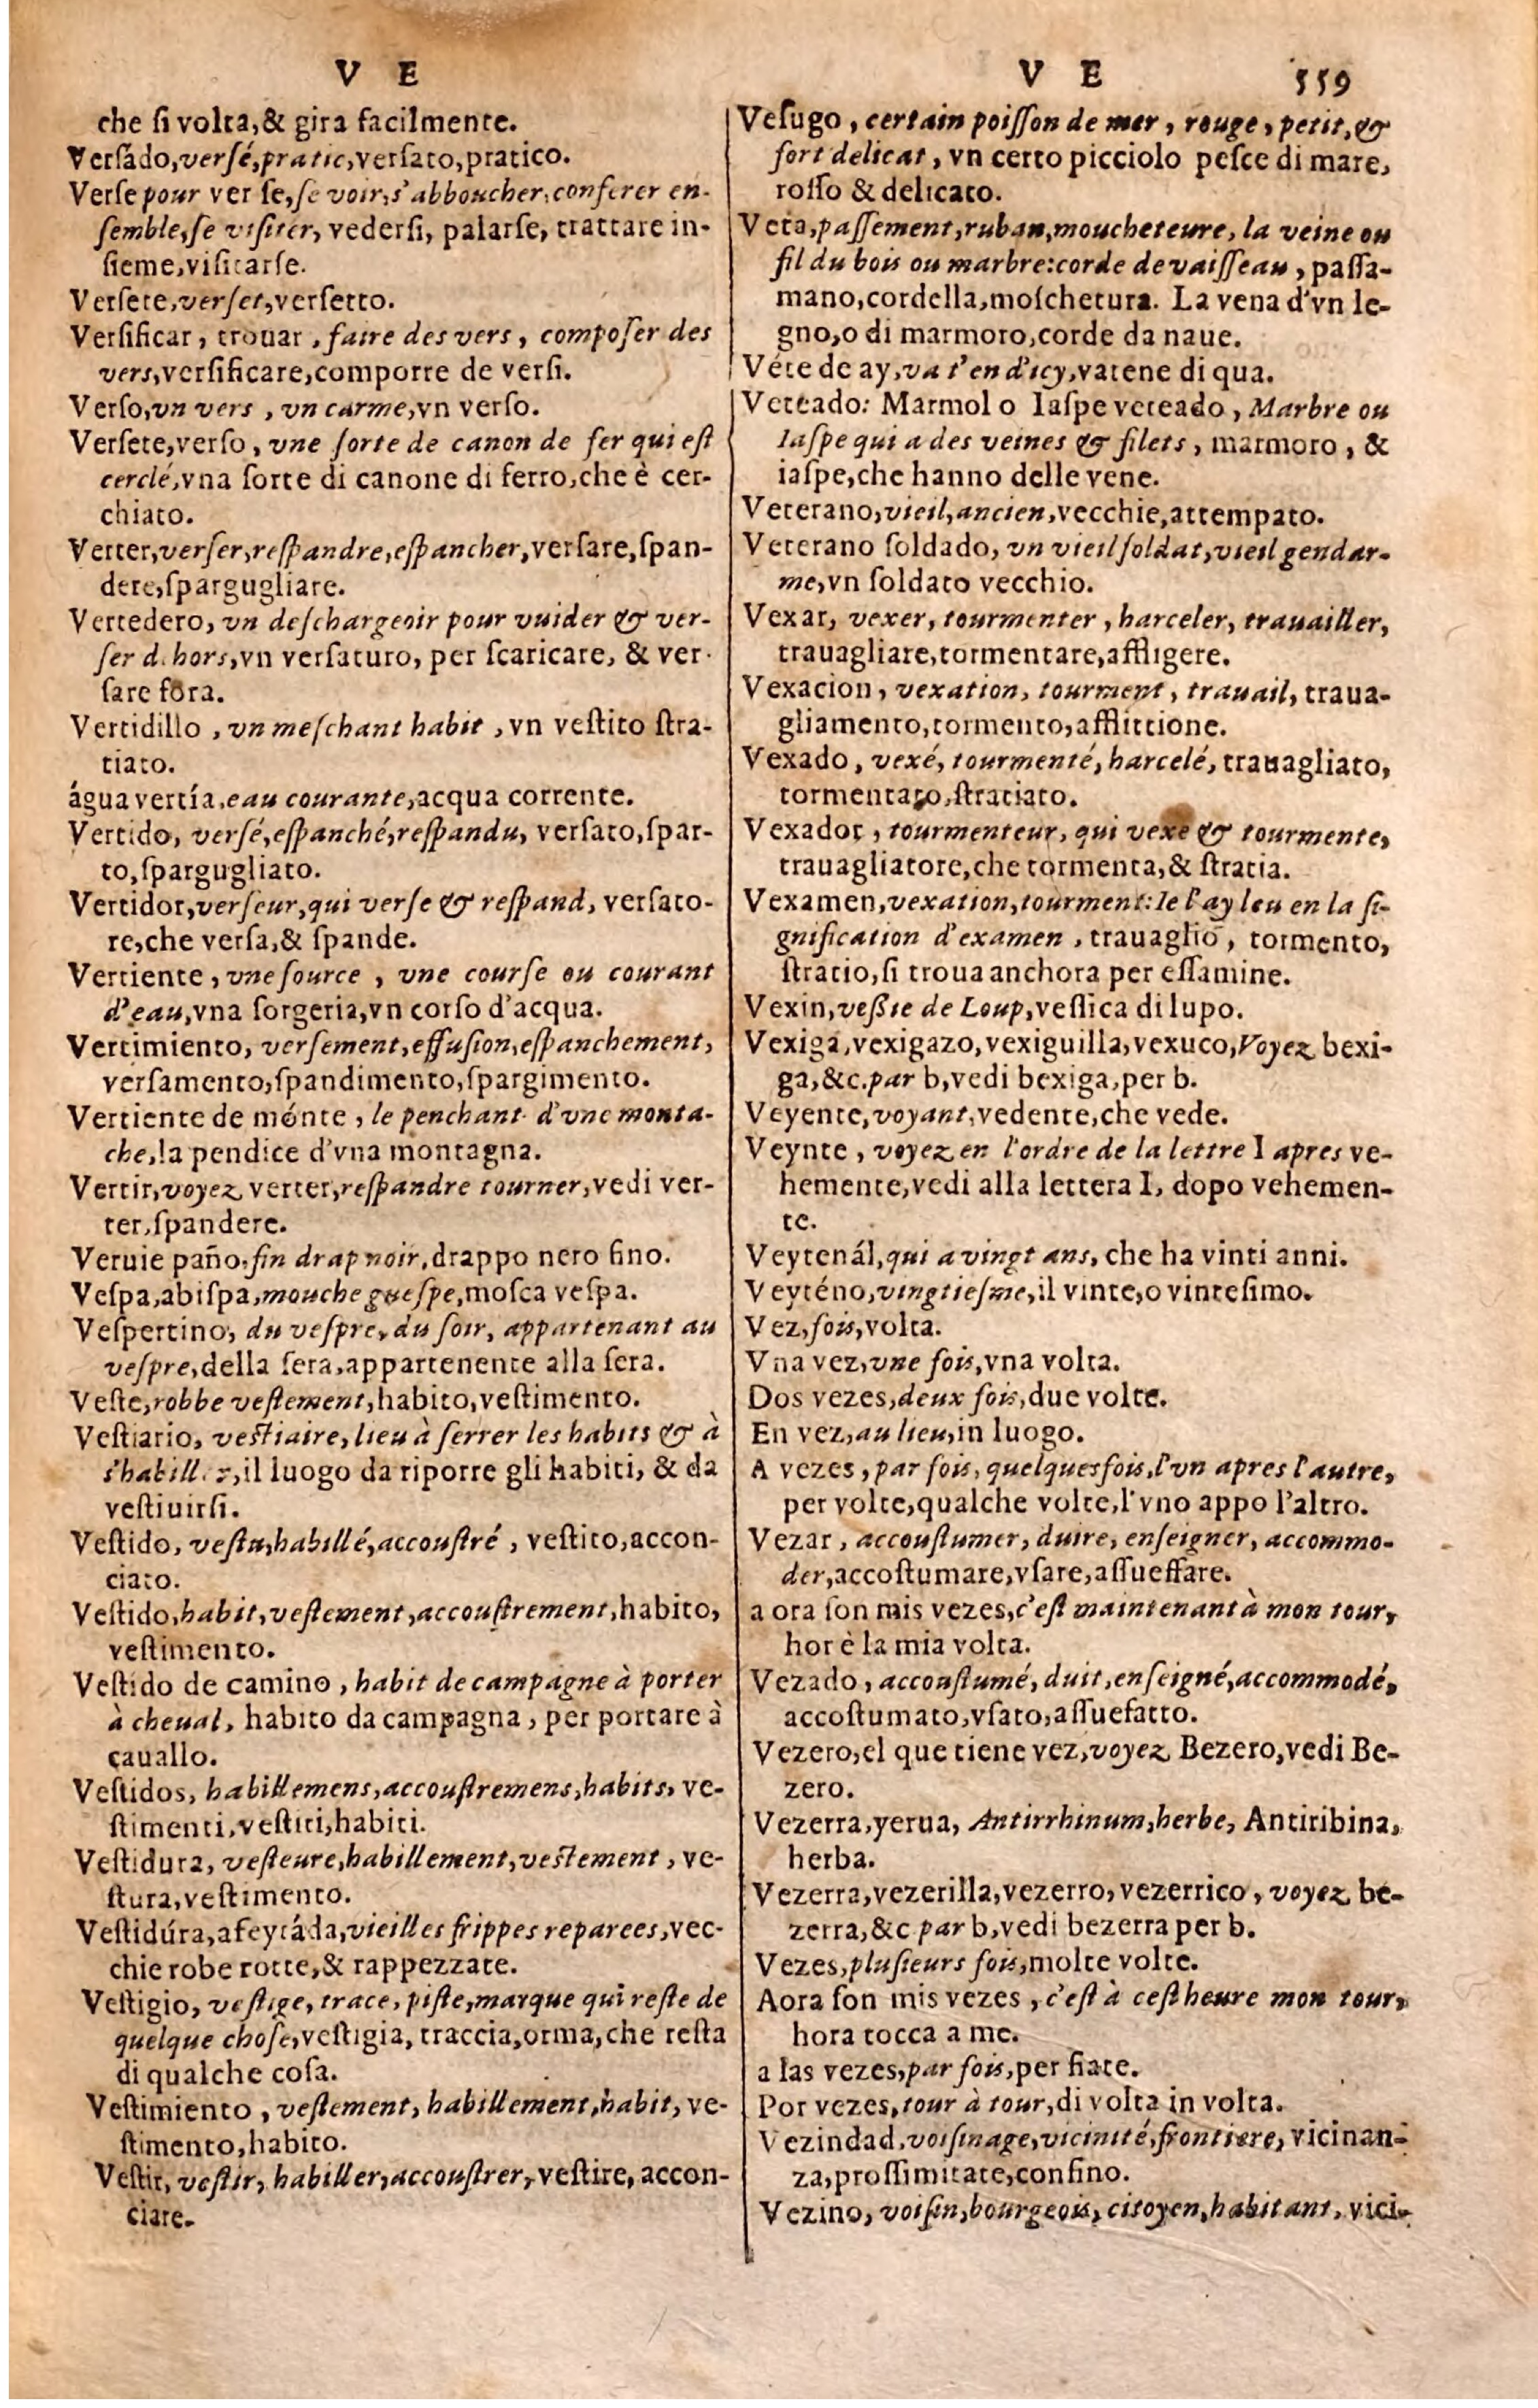 V E
che ſi volta,& gira facilmente.
Verſádo,verſé,pratic,verſato,pratico.
Verſe pour ver ſe,ſe voir,s'abboucher,conferer en-
ſemble,ſe viſiter, vederſi, palarſe, trattare in-
ſieme,viſitarſe.
Verſete,verſet,verſetto.
Verſificar, trouar, faire des vers, compoſer des
vers,verſificare,comporre de verſi.
Verſo,vn vers, vn carme,vn verſo.
Verſete,verſo, vne ſorte de canon de fer qui eſt
cerclé,vna ſorte di canone di ferro,che è cer-
chiato.
Verter,verſer,reſpandre,eſpancher,verſare,ſpan-
dere,ſpargugliare.
Vertedero, vn deſchargeoir pour vuider & ver-
ſer dehors,vn verſaturo, per ſcaricare, & ver-
ſare fora.
Vertidillo, vn meſchant habit, vn veſtito ſtra-
tiato.
água vertía,eau courante,acqua corrente.
Vertido, verſé,eſpanché,reſpandu, verſato,ſpar-
to,ſpargugliato.
Vertidor,verſeur,qui verſe & reſpand, verſato-
re,che verſa,& ſpande.
Vertiente, vne ſource, vne courſe ou courant
d'eau,vna ſorgeria,vn corſo d'acqua.
Vertimiento, verſement,effuſion,eſpanchement,
verſamento,ſpandimento,ſpargimento.
Vertiente de mónte, le penchant d'vne monta-
che,la pendice d'vna montagna.
Vertir,voyez verter,reſpandre tourner,vedi ver-
ter,ſpandere.
Veruie paño,fin drap noir,drappo nero fino.
Veſpa,abiſpa,mouche gueſpe,moſca veſpa.
Veſpertino, du veſpre,du ſoir, appartenant au
veſpre,della ſera,appartenente alla ſera.
Veſte,robbe veſtement,habito,veſtimento.
Veſtiario, veſtiaire,lieu à ſerrer les habits & à
s'habiller,il luogo da riporre gli habiti, & da
veſtiuirſi.
Veſtido, veſtu,habillé,accouſtré, veſtito,accon-
ciato.
Veſtido,habit,veſtement,accouſtrement,habito,
veſtimento.
Veſtido de camino, habit de campagne à porter
à cheual, habito da campagna, per portare à
cauallo.
Veſtidos, habillemens,accouſtremens,habits, ve-
ſtimenti,veſtiti,habiti.
Veſtidura, veſteure,habillement,veſtement, ve-
ſtura,veſtimento.
Veſtidúra,afeytáda,vieilles frippes reparees,vec-
chie robe rotte,& rappezzate.
Veſtigio, veſtige, trace, piſte,marque qui reſte de
quelque choſe,veſtigia, traccia,orma,che reſta
di qualche coſa.
Veſtimiento, veſtement, habillement,habit, ve-
ſtimento,habito.
Veſtir, veſtir, habiller,accouſtrer, veſtire, accon-
ciare.
V E 559
Veſugo, certain poiſſon de mer, rouge, petit,&
fort delicat, vn certo picciolo peſce di mare,
roſſo & delicato.
Veta,paſſement,ruban,moucheteure, la veine ou
fil du bois ou marbre:corde de vaiſſeau, paſſa-
mano,cordella,moſchetura. La vena d'vn le-
gno,o di marmoro,corde da naue.
Véte de ay,va t'en d'icy,vatene di qua.
Veteado: Marmol o Iaſpe veteado, Marbre ou
Iaſpe qui a des veines & filets, marmoro, &
iaſpe,che hanno delle vene.
Veterano,vieil,ancien,vecchie,attempato.
Veterano ſoldado, vn vieil ſoldat,vieil gendar-
me,vn ſoldato vecchio.
Vexar, vexer, tourmenter, harceler, trauailler,
trauagliare,tormentare,affligere.
Vexacion, vexation, tourment, trauail, traua-
gliamento,tormento,afflittione.
Vexado, vexé, tourmenté, harcelé, trauagliato,
tormentato,ſtratiato.
Vexador, tourmenteur, qui vexe & tourmente,
trauagliatore,che tormenta,& ſtratia.
Vexamen,vexation,tourment:Ie l'ay leu en la ſi-
gnification d'examen, trauaglio, tormento,
ſtratio,ſi troua anchora per eſſamine.
Vexin,veßie de Loup,veſſica di lupo.
Vexiga,vexigazo,vexiguilla,vexuco,Voyez bexi-
ga,&c.par b,vedi bexiga,per b.
Veyente,voyant,vedente,che vede.
Veynte, voyez en l'ordre de la lettre I apres ve-
hemente,vedi alla lettera I, dopo vehemen-
te.
Veytenál,qui a vingt ans, che ha vinti anni.
Veyténo,vingtieſme,il vinte,o vinteſimo.
Vez,fois,volta.
Vna vez,vne fois,vna volta.
Dos vezes,deux fois,due volte.
En vez,au lieu,in luogo.
A vezes, par fois, quelquesfois,l'vn apres l'autre,
per volte,qualche volte,l'vno appo l'altro.
Vezar, accouſtumer, duire, enſeigner, accommo-
der,accoſtumare,vſare,aſſueffare.
a ora ſon mis vezes,c'eſt maintenant à mon tour,
hor è la mia volta.
Vezado, accouſtumé, duit,enſeigné,accommodé,
accoſtumato,vſato,aſſuefatto.
Vezero,el que tiene vez,voyez Bezero,vedi Be-
zero.
Vezerra,yerua, Antirrhinum,herbe, Antiribina,
herba.
Vezerra,vezerilla,vezerro,vezerrico, voyez be-
zerra,&c par b,vedi bezerra per b.
Vezes,pluſieurs fois,molte volte.
Aora ſon mis vezes, c'eſt à ceſt heure mon tour,
hora tocca a me.
a las vezes,par fois,per fiate.
Por vezes,tour à tour,di volta in volta.
Vezindad,voiſinage,vicinité,frontiere, vicinan-
za,proſſimitate,confino.
Vezino, voiſin,bourgeois, citoyen,habitant, vici-